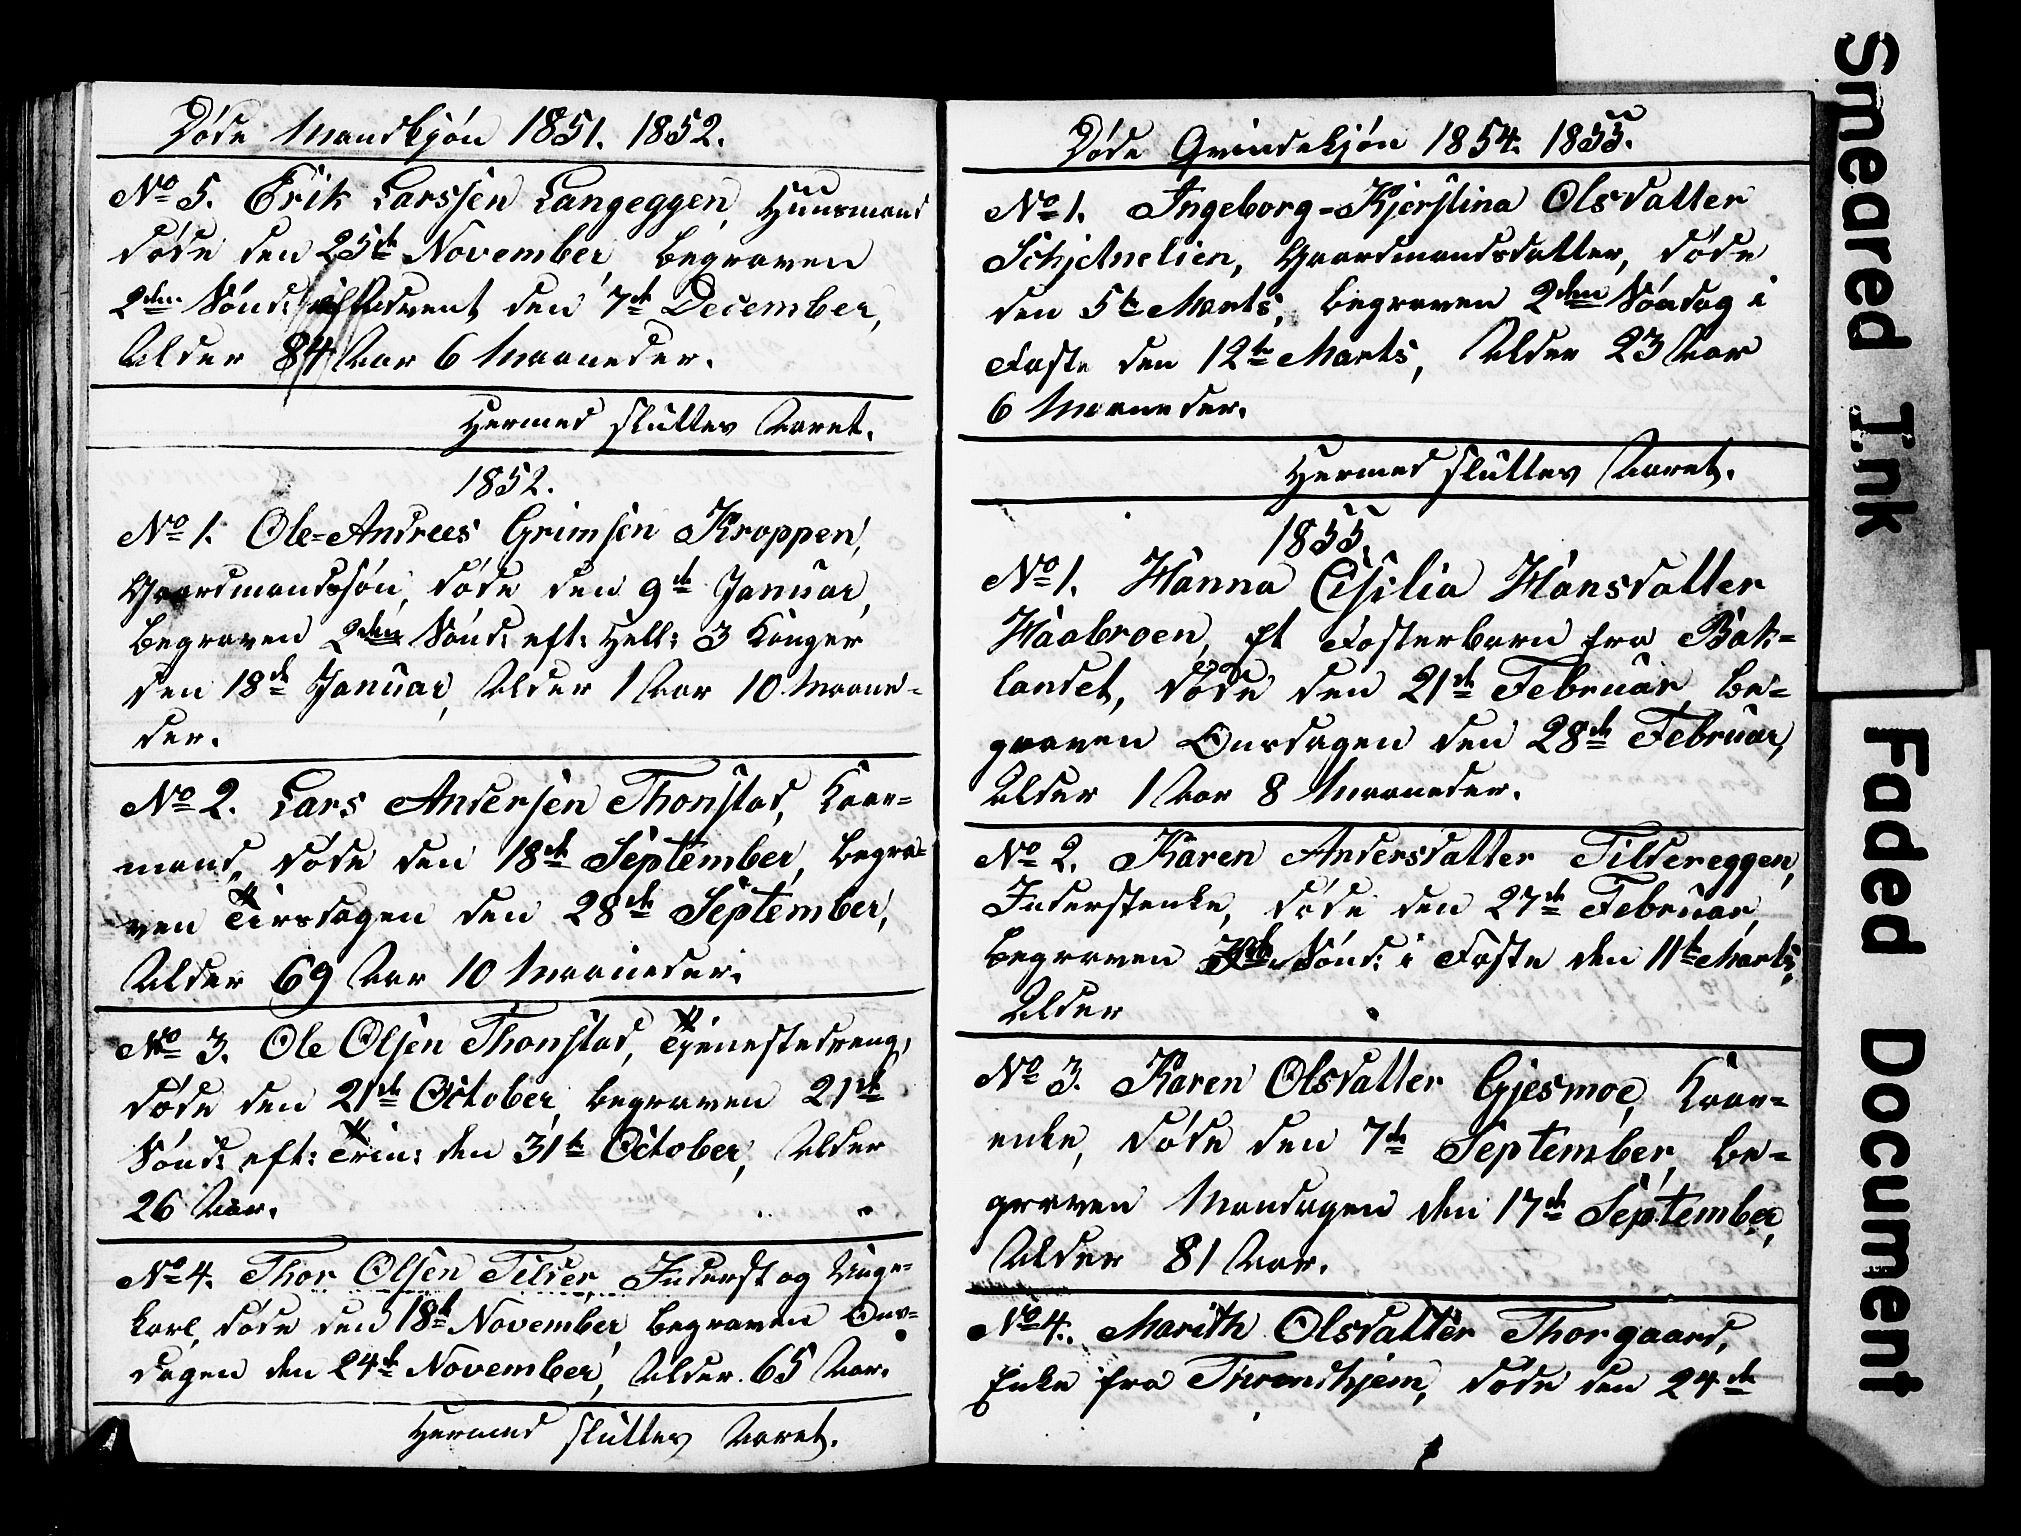 Døde Mandkjøn 1851. 1852.
No 5. Erik Larssen Langeggen, Huusmand
døde den 25de November, begraven
2den Sønd: i Advent den 7de December,
Alder 84 Aar 6 Maaneder.
Hermed sluttes Aaret.
1852.
No 1. Ole=Andreas Grimsen Kroppen,
Gaardmandssøn, døde den 9de Januar,
begraven 2den Sønd: eft: Hell: 3 Konger
den 18de Januar, Alder 1 Aar 10 Maane-
der.
No 2. Lars Andersen Thonstad, Kaar=
mand, døde den 18de September, begra=
ven Tirsdagen den 28de September,
Alder 69 Aar 10 Maaneder.
No 3. Ole Olsen Thonstad, Tjenestedreng,
døde den 21de October, begraven 21de
Sønd: eft: Trin: den 31te October, Alder
26 Aar.
No 4. Thor Olsen Tilder, Inderst og Unge=
karl, døde den 18de November, begraven Ons=
dagen den 24de November, Alder 65 Aar.
Hermed sluttes Aaret.
Døde Qvindekjøn 1854. 1855.
No 1. Ingeborg=Kjerstina Olsdatter
Schjetnelien, Gaardmandsdatter, døde
den 5te Marts, begraven 2den Søndag i
Faste den 12te Marts, Alder 23 Aar
6 Maaneder.
Hermed sluttes Aaret.
1855.
No 1. Hanna Cisilia Hansdatter
Haabroen, et Fosterbarn fra Bak=
landet, døde den 21de Februar, be=
graven Onsdagen den 28de Februar,
Alder 1 Aar 8 Maaneder.
No 2. Karen Andersdatter Tildereggen,
Inderstenke, døde den 27de Februar,
begraven Sønd: i Faste den 11te Marts,
Alder
No 3. Karen Olsdatter Gjesmoe, Kaar=
enke, døde den 7de September, be=
graven Mandagen den 17de September,
Alder 81 Aar.
No 4. Marith Olsdatter Thorgaard,
Enke fra Throndhjem, døde den 24de
Smeared Ink
Faded Document